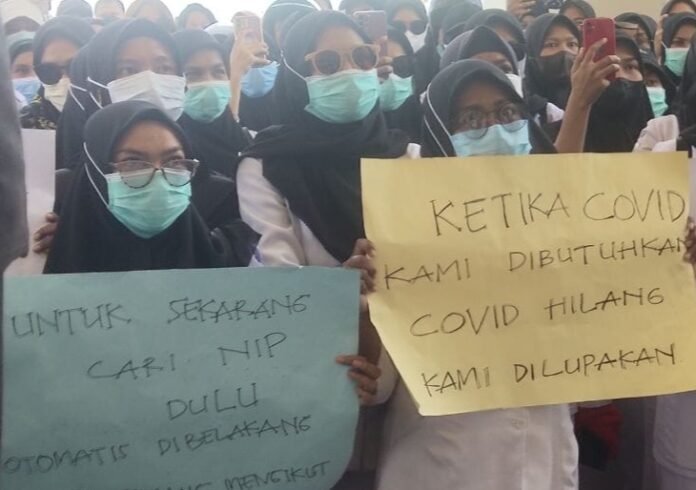 UNTUK SEKARANG
CARI NIP
DULU
OTOMATIS DIBELAKANG
MENGIKUT
KETIKA COVID
KAMI DIBUTUHKAN
COVID HILANG
KAMI DILUPAKAN